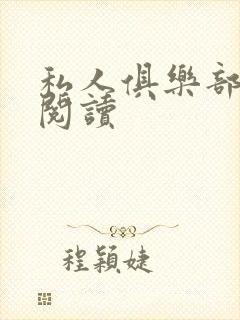 私人俱樂部
閱讀
程穎婕